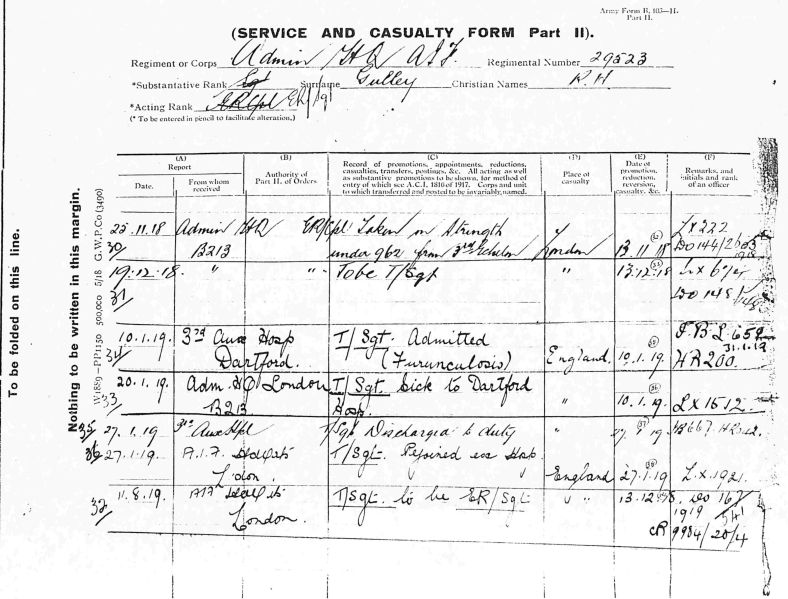 Army Form B. 103—II.
Part II.
(SERVICE AND CASUALTY FORM Part II).
Regiment or Corps Admin HQ AIF Regimental Number 29523
*Substantive Rank Sgt Surname Gulley Christian Names R. H.
*Acting Rank ER/Cpl ER/Sgt
(* To be entered in pencil to facilitate alteration.)
To be folded on this line.
Nothing to be written in this margin.
W 1889—PP1150 500,000 5/18 G.W.P.Co (3490)
(A) (B) (C) (D) (E) (F)
Report
Date. From whom received
Authority of Part II. of Orders
Record of promotions, appointments, reductions, casualties, transfers, postings, &c. All acting as well as substantive promotions to be shown, for method of entry of which see A.C.I. 1816 of 1917. Corps and unit to which transferred and posted to be invariably named.
Place of casualty
Date of promotion, reduction, reversion, casualty, &c.
Remarks, and initials and rank of an officer
25.11.18 Admin HQ ER/Cpl Taken on Strength Lx222
30 B213 under 962 from 3rd Echelon London 13.11.18 DO144/2605
19.12.18 " " To be T/Sgt " 13.12.18
31 DO 148
10.1.19. 3rd Aux Hosp T/Sgt. Admitted
34 Dartford. (Furunculosis) England. 10.1.19. HR200.
31.1.19
20.1.19. Adm. HQ London T/Sgt. Sick to Dartford
33 B213 Hosp. " 10.1.19. Lx1512.
35 27.1.19 3rd Aux Hpl T/Sgt Discharged to duty "
36 27.1.19 A.I.F. Hdqts T/Sgt. Rejoined ex Hosp
Ldon. England 27.1.19 Lx.1921.
11.8.19. AIF Hdqts T/Sgt. to be ER/Sgt " " 13.12.18. DO 167
32 London. 1919
CR 9984/20/4